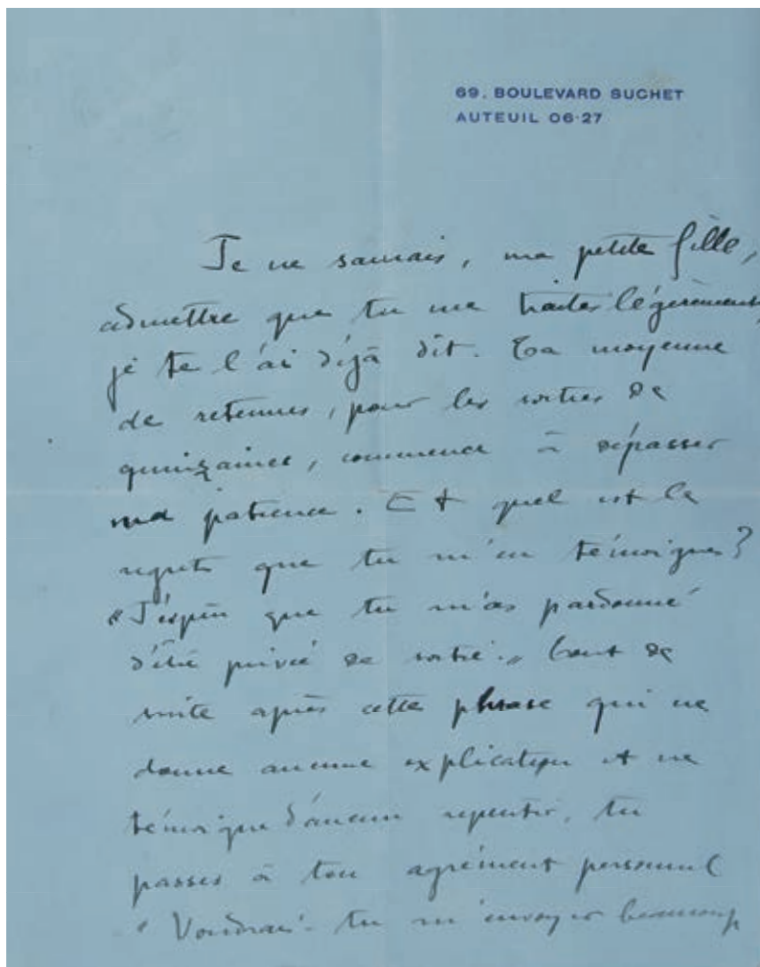 69, BOULEVARD SUCHET
AUTEUIL 06·27
Je ne saurais, ma petite fille,
admettre que tu me traites légèrement,
je te l'ai déjà dit. Ta moyenne
de retenues, pour les sorties de
quinzaines, commence à dépasser
ma patience. Et quel est le
regret que tu m'en témoignes ?
"J'espère que tu m'as pardonné
d'être privée de sortie." Tout de
suite après cette phrase qui ne
donne aucune explication et ne
témoigne d'aucun repentir, tu
passes à ton agrément personnel
"Voudrais-tu m'envoyer beaucoup